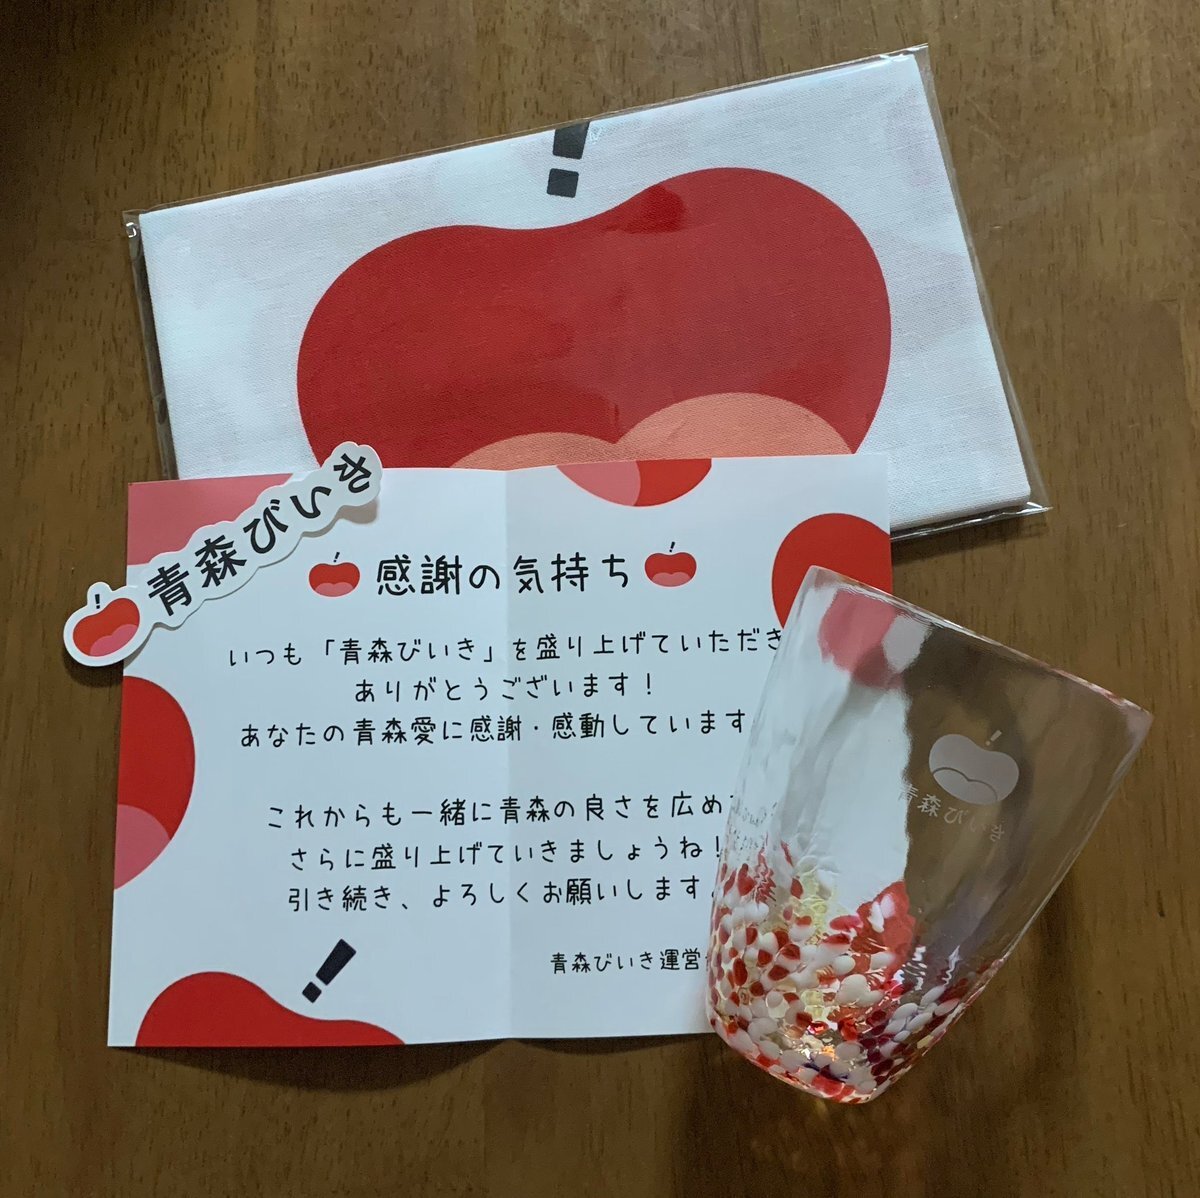 青森びいき
感謝の気持ち
いつも「青森びいき」を盛り上げていただき
ありがとうございます！
あなたの青森愛に感謝・感動しています
これからも一緒に青森の良さを広め
さらに盛り上げていきましょうね！
引き続き、よろしくお願いします
青森びいき運営
青森びいき